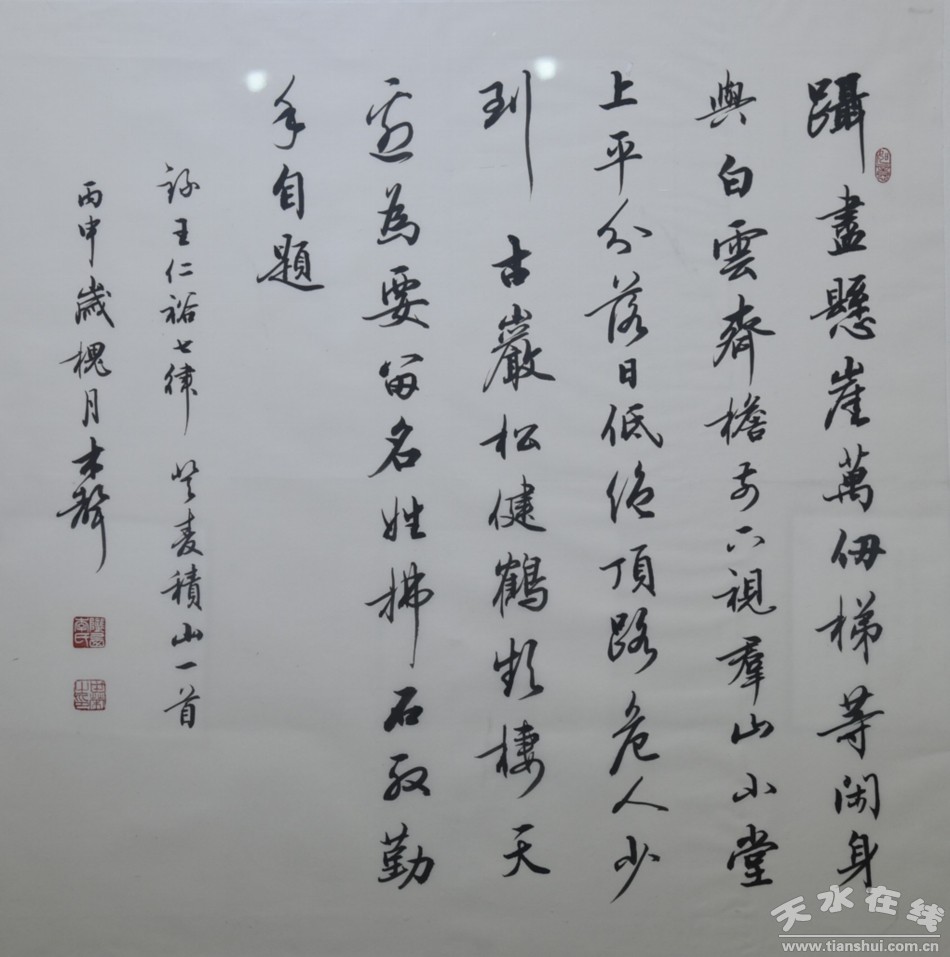 躡盡懸崖萬仞梯等閑身
與白雲齊檐前下視羣山小堂
上平分落日低絕頂路危人少
到古巖松健鶴頻棲天
邊為要留名姓拂石殷勤
手自題
錄王仁裕七律 登麥積山一首
丙申歲槐月木聲
天水在线
www.tianshui.com.cn